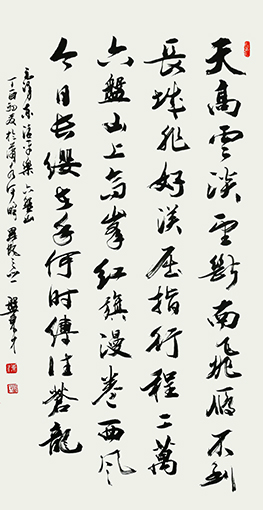 天高雲淡望斷南飛雁不到
長城非好漢屈指行程二萬
六盤山上高峯紅旗漫卷西風
今日長纓在手何時縛住蒼龍
毛澤東清平樂六盤山
丁酉初夏於